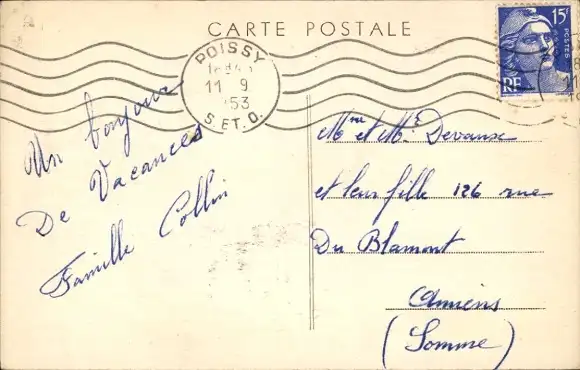 CARTE POSTALE
15F
POSTES
RF
POISSY
11 9
1953
S. ET. O.
Un bonjour
De Vacances
Famille Collin
Mme et Mr Devanse
et leur fille 126 rue
Du Blamont
Amiens
(Somme)